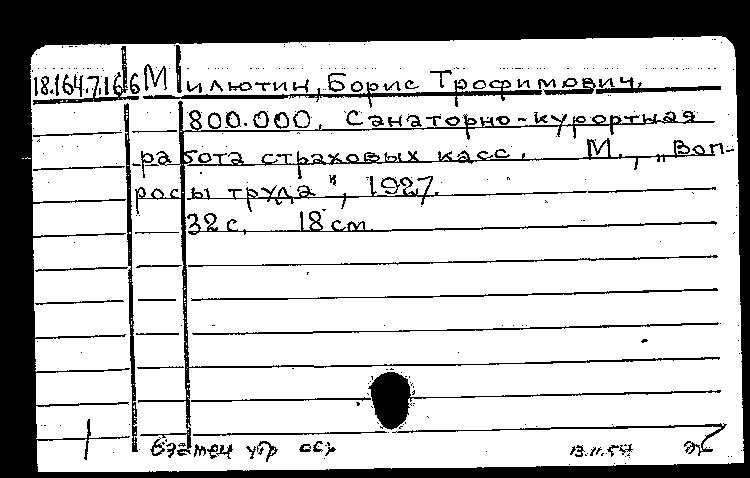 18.164.7.166 Милютин, Борис Трофимович.
800.000. Санаторно-курортная
работа страховых касс. М., „Воп-
росы труда", 1927.
32 с. 18 см.
взамен утр